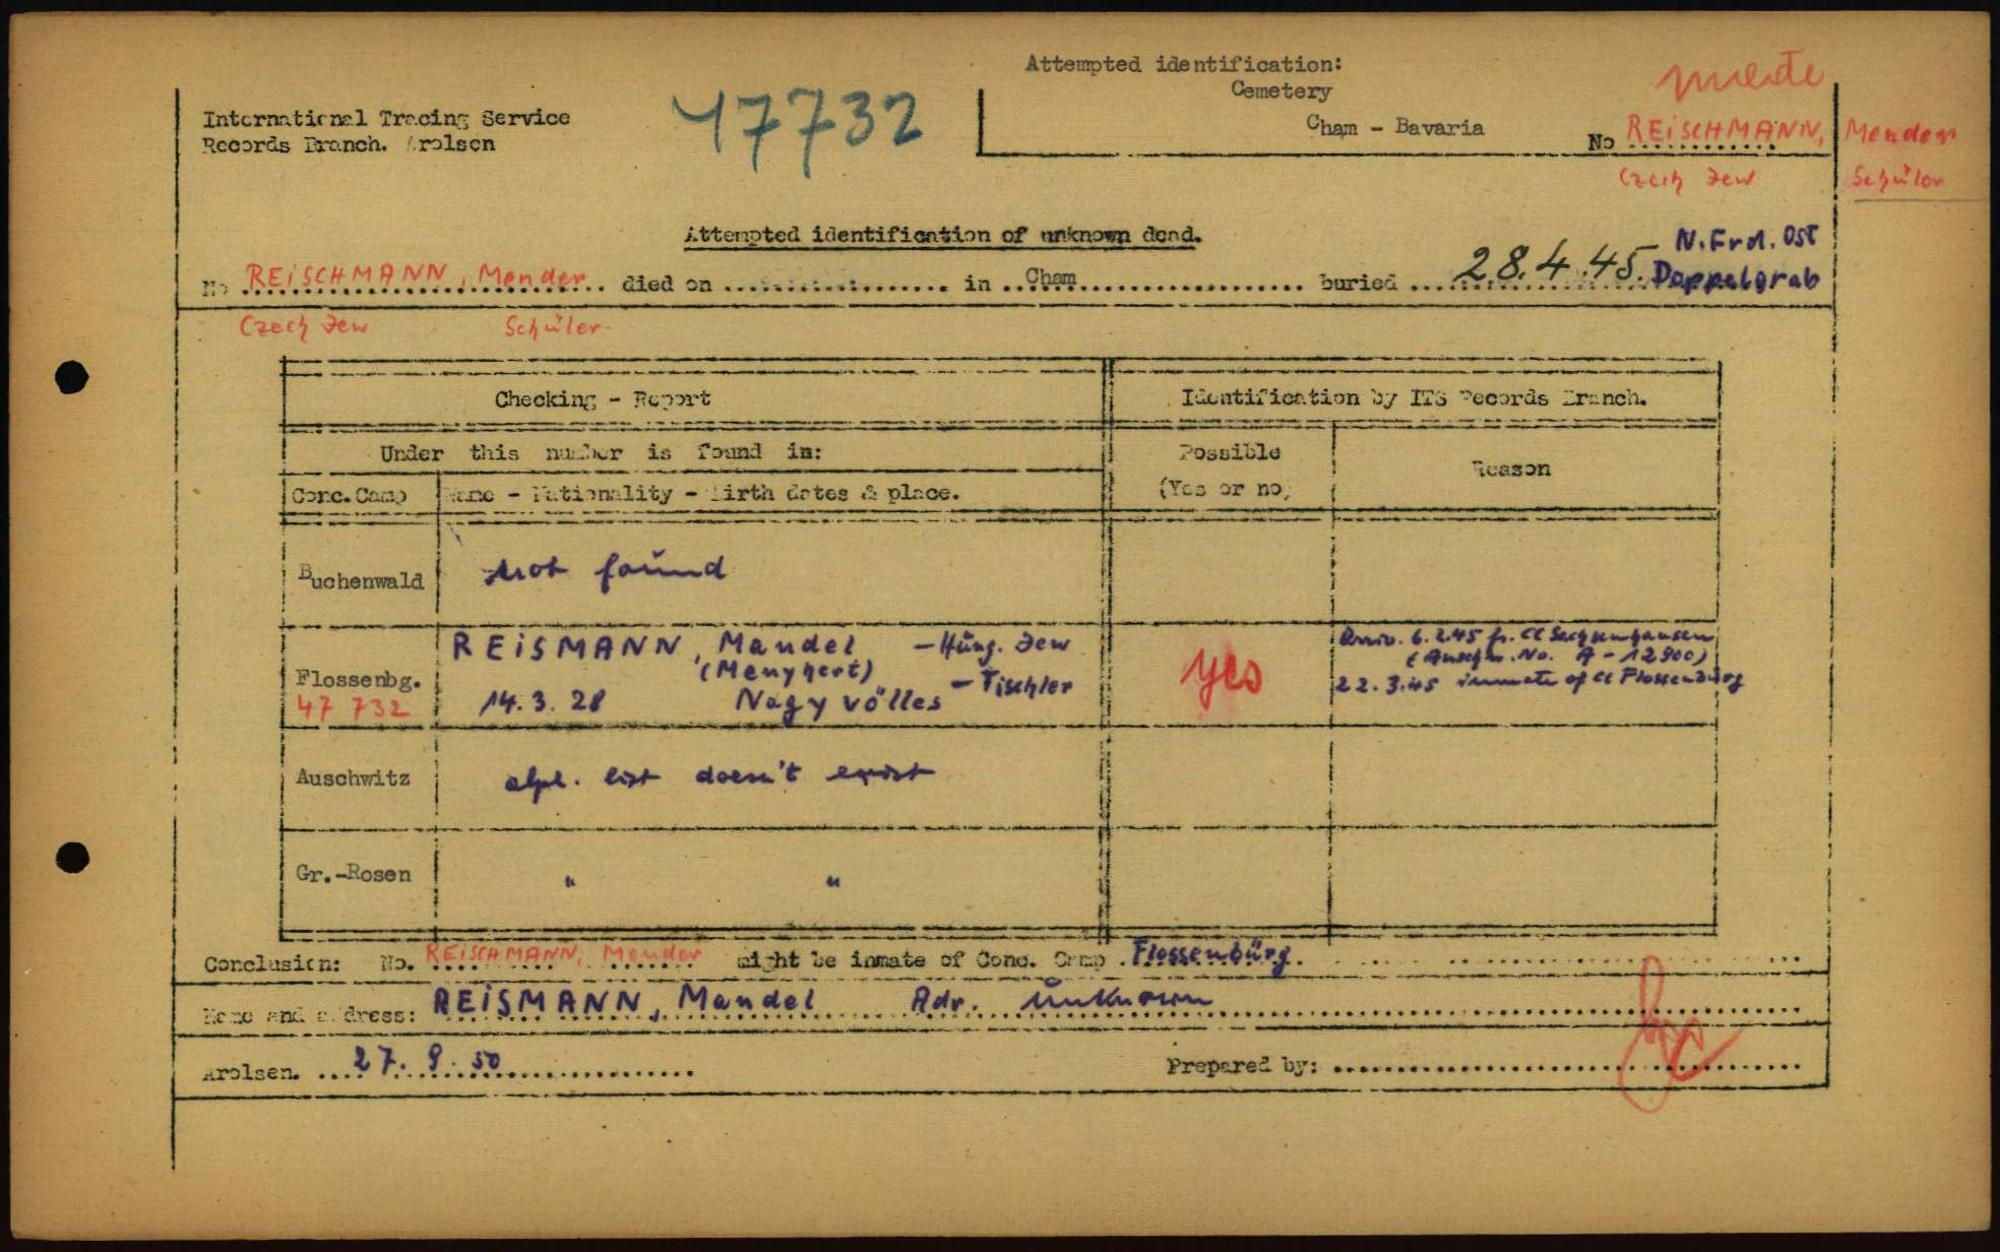 Attempted identification:
Cemetery
Cham - Bavaria
International Tracing Service
Records Branch. Arolsen
47732
No REISCHMANN, Mender
Czech Jew Schüler
Attempted identification of unknown dead.
N.Frd. Ost
No REISCHMANN, Mender died on in Cham buried 28.4.45. Doppelgrab
Czech Jew Schüler
Checking - Report
Identification by ITS Records Branch.
Under this number is found in:
Possible
(Yes or no)
Reason
Conc.Camp
Name - Nationality - Birth dates & place.
Buchenwald
not found
Flossenbg.
47 732
REISMANN, Mandel - Hung. Jew
(Menyhert) - Tischler
14.3.28 Nagy völles
yes
Arriv. 6.2.45 fr. CC Sachsenhausen
(Auschw. No. A-12900)
22.3.45 inmate of CC Flossenbürg
Auschwitz
alph. list doesn't exist
Gr.-Rosen
" "
Conclusion: No. REISCHMANN, Mender might be inmate of Conc. Camp Flossenbürg.
Name and address: REISMANN, Mandel Adr. unknown
Arolsen. 27. 9. 50
Prepared by: